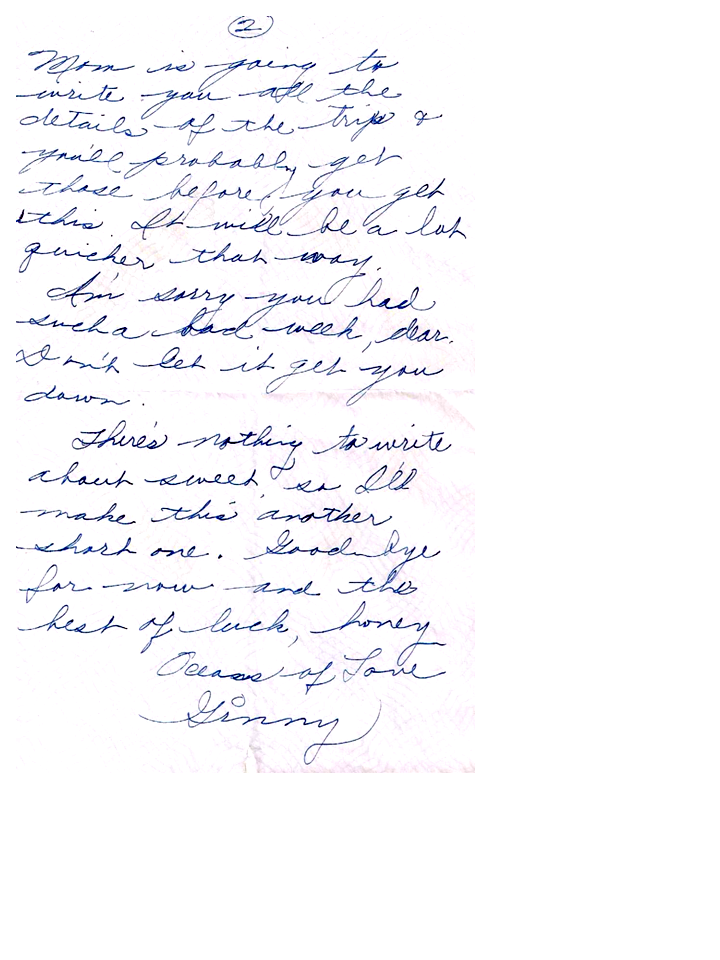 2
Mom is going to
write you all the
details of the trip &
you'll probably get
those before you get
this. It will be a lot
quicker that way.
I'm sorry you had
such a bad week, dear.
Don't let it get you
down.
There's nothing to write
about sweet, so I'll
make this another
short one. Good-bye
for now and the
best of luck, honey
Oceans of Love
Ginny